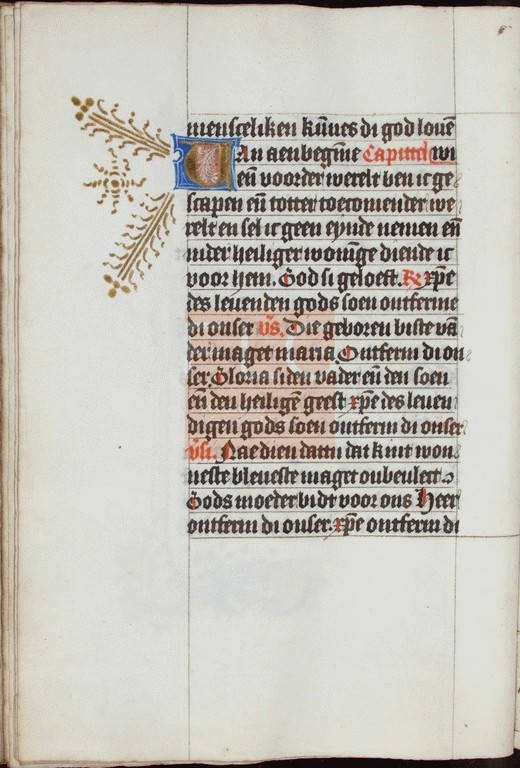 mensceliken kūnes di god louē
Van aenbeginne Capittel wi
eñ voorder werelt ben ic ge
scapen eñ totter toecomender we
relt en sel ic geen eynde nemen eñ
inder heiliger woninge diende ic
voor hem. God si geloeft. R xp̄e
des leuenden gods soen ontferme
di onser v̄s. Die geboren biste vā
der maget maria. Ontferm di on
ser. Gloria si den vader eñ den soen
eñ den heiligē geest xp̄e des leuen
digen gods soen ontferm di onser
v̄s. Nae dien dattu dat kint won
neste bleueste maget onbeulect
Gods moeder bidt voor ons Heer
ontferm di onser. xp̄e ontferm di